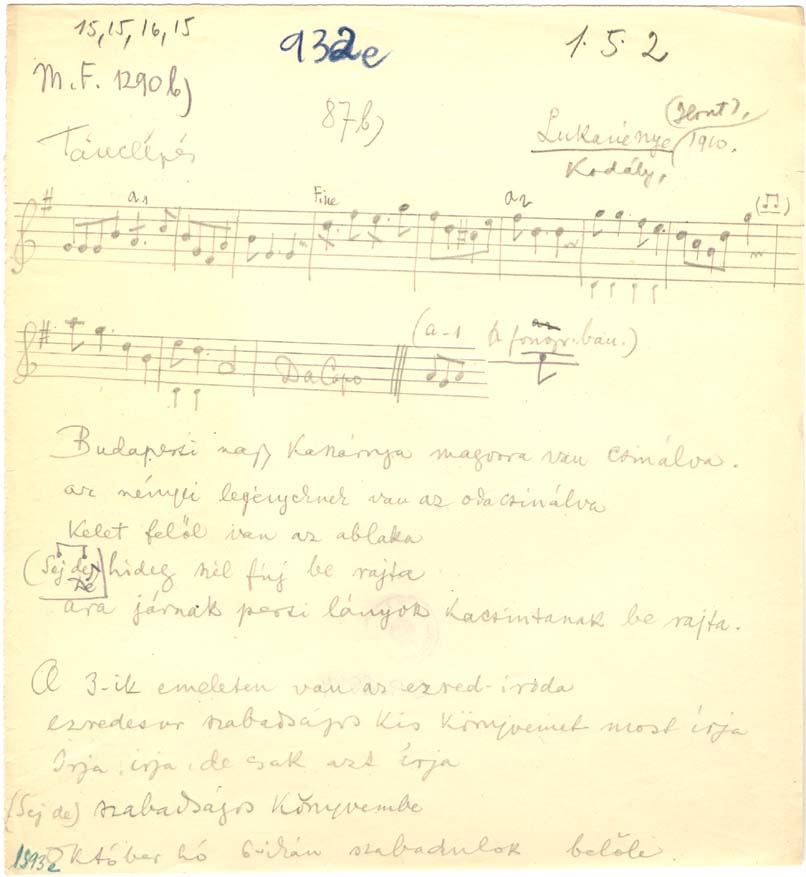 15, 15, 16, 15
932e
1. 5. 2
M. F. 1290 b)
87 b)
(Hont),
Lukanénye 1910.
Kodály,
Tánclépés
a.1
Fine
a2
Da Capo
(a-1 A fonogr.-ban.)
Budapesti nagy kaszárnya magosra van csinálva.
az nényei legényeknek van az oda csinálva
Kelet felől van az ablaka
(Sej de) hideg szél fúj be rajta
ara járnak pesti lányok kacsintanak be rajta.
A 3-ik emeleten van az ezred-iroda
ezredesur szabadságos kis könyvemet most írja
Írja, írja, de csak azt írja
(Sej de) szabadságos könyvembe
Október hó 6-ikán szabadulok belőle
1393e